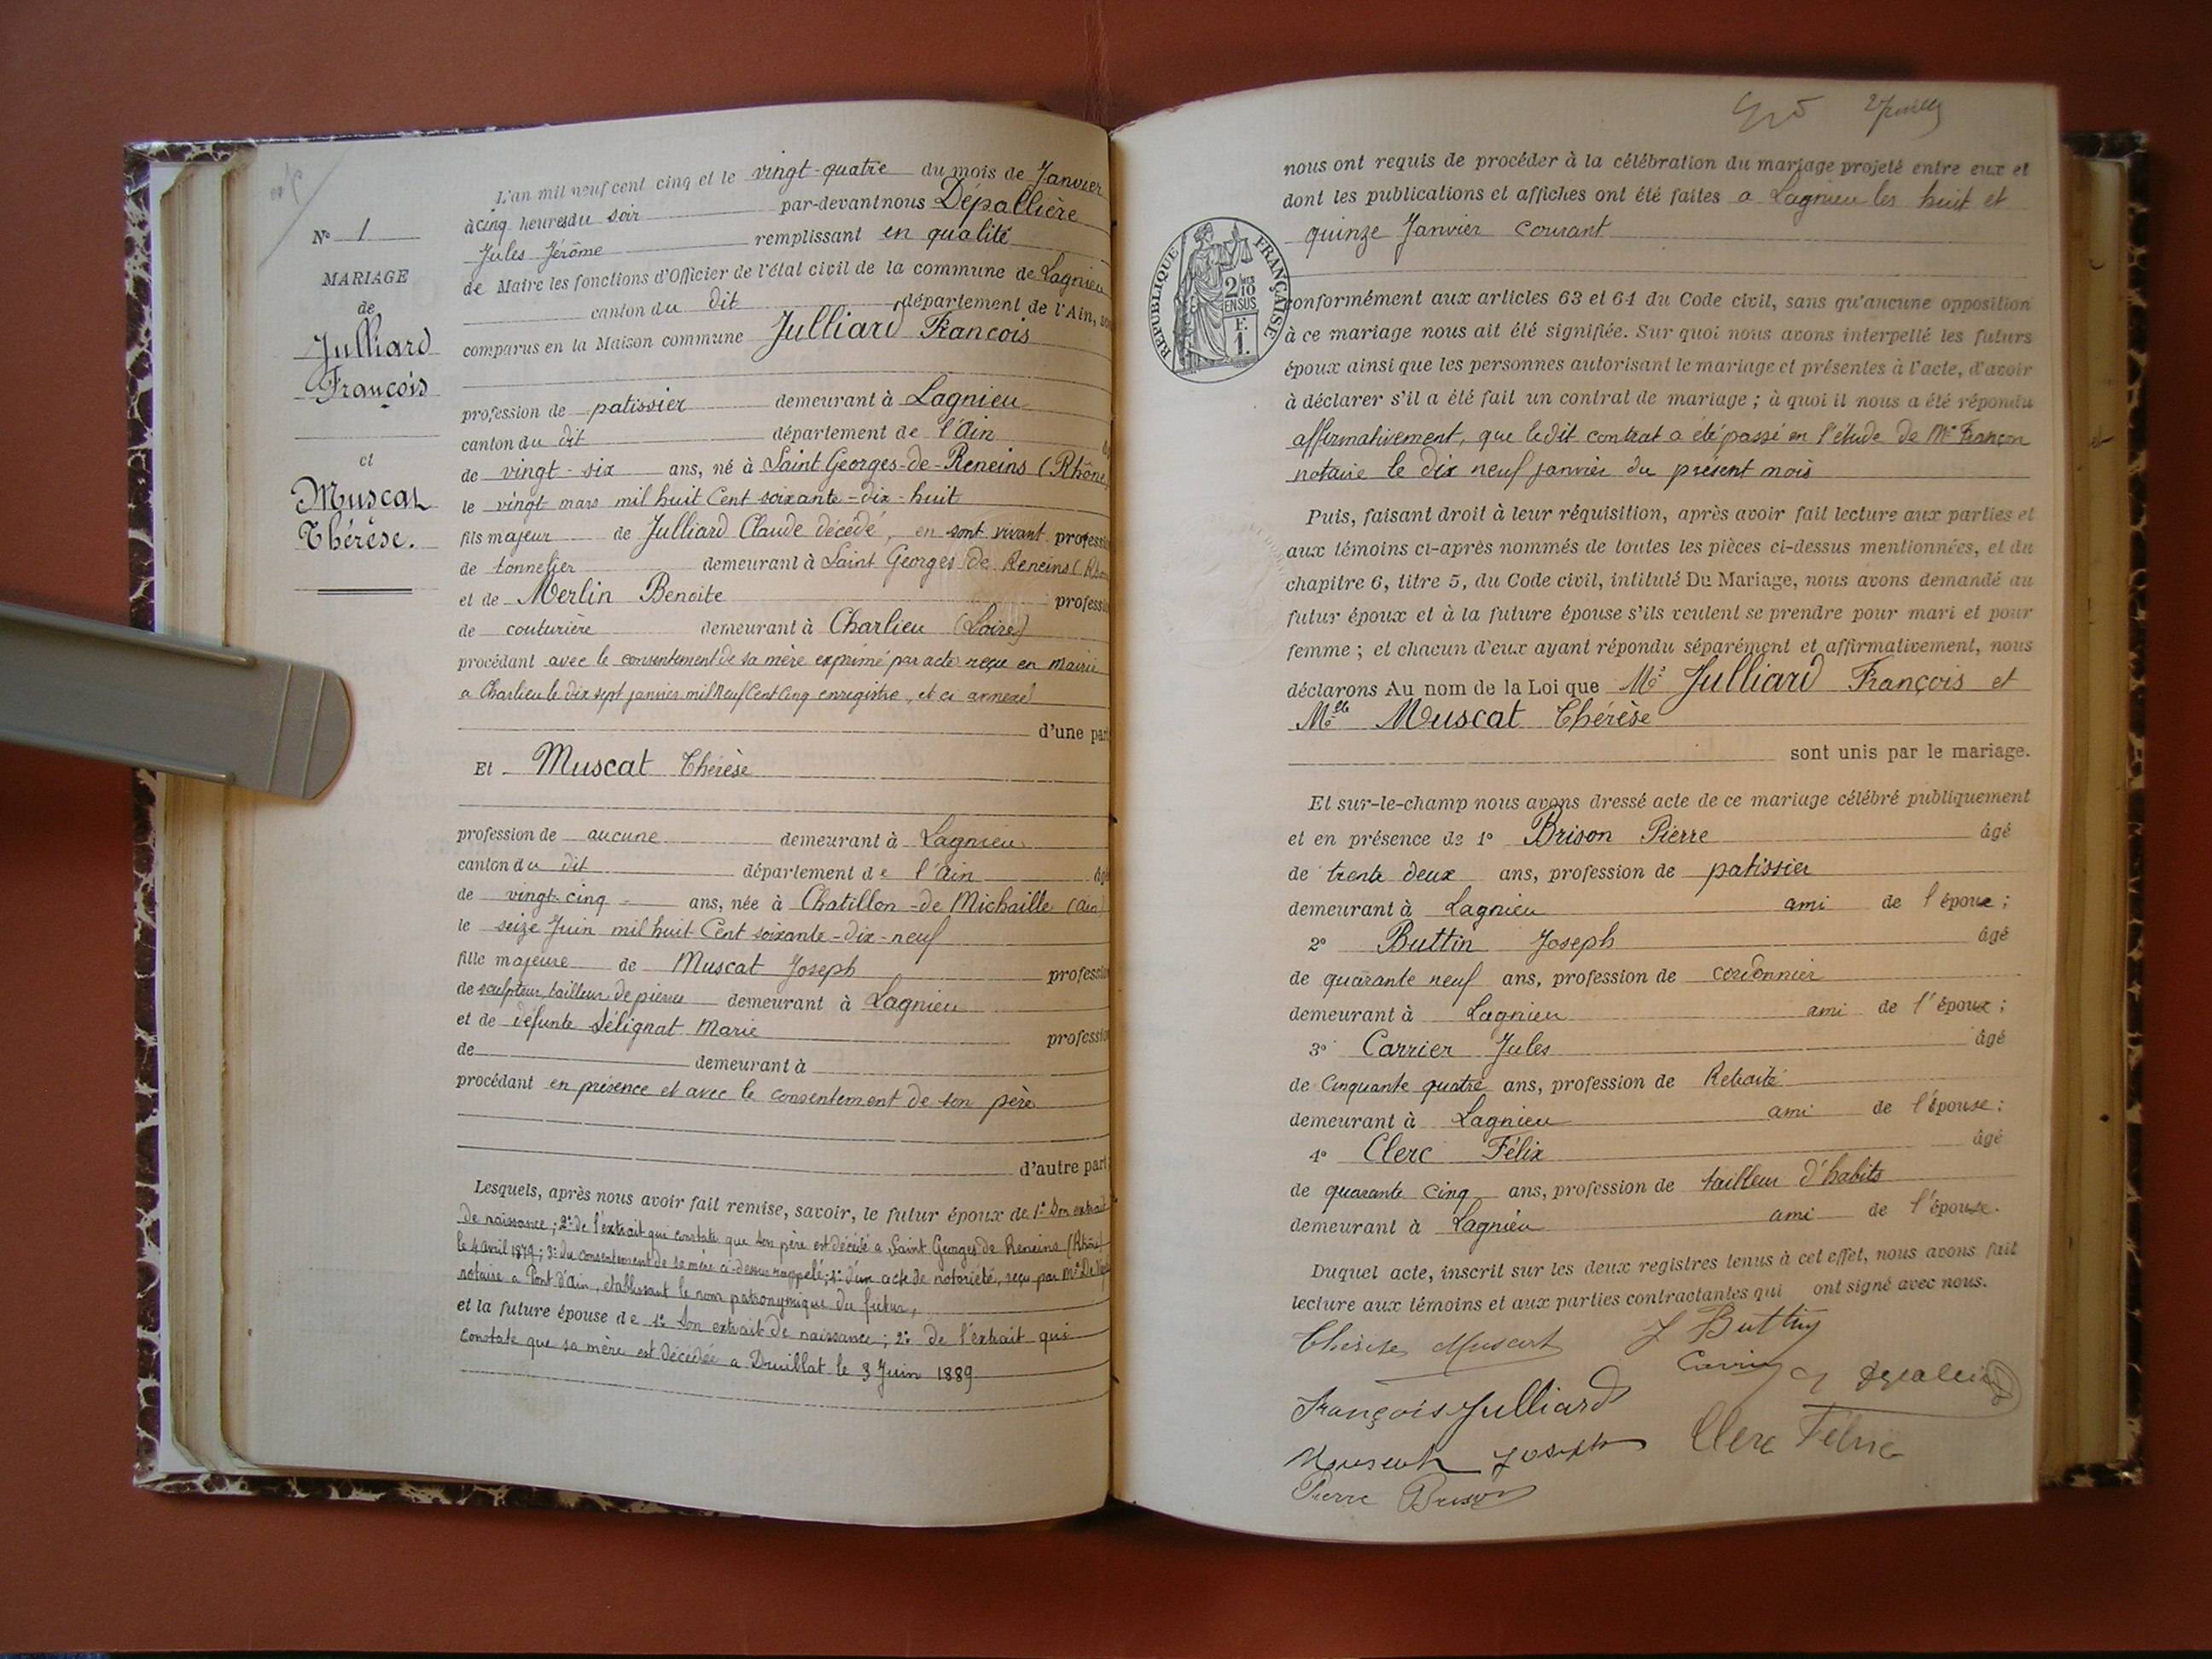 Nº 1
MARIAGE
de
Julliard
François
et
Muscat
Thérèse.
L'an mil neuf cent cinq et le vingt-quatre du mois de Janvier
à cinq heures du soir par-devant nous Dépallière
Jules Jérôme remplissant en qualité
de Maire les fonctions d'Officier de l'état civil de la commune de Lagnieu
canton du dit département de l'Ain,
comparus en la Maison commune Julliard Francois
profession de patissier demeurant à Lagnieu
canton du dit département de l'Ain
de vingt-six ans, né à Saint Georges-de-Reneins (Rhône)
le vingt mars mil huit Cent soixante-dix-huit
fils majeur de Julliard Claude décédé, en sont vivant profession
de tonnelier demeurant à Saint Georges de Reneins (Rhône
et de Merlin Benoite profession
de couturière demeurant à Charlieu (Loire)
procédant avec le consentement de sa mère exprimé par acte reçu en mairie
a Charlieu le dix sept janvier mil Neuf Cent Cinq enregistré, et ci annexé
d'une part
Et Muscat Thérèse
profession de aucune demeurant à Lagnieu
canton du dit département de l'Ain âgé
de vingt-cinq ans, née à Chatillon-de-Michaille (Ain)
le seize Juin mil huit Cent soixante-dix-neuf
fille majeure de Muscat Joseph profession
de sculpteur, tailleur de pierres demeurant à Lagnieu
et de défunte Sélignat Marie profession
de demeurant à
procédant en présence et avec le consentement de son père
d'autre part;
Lesquels, après nous avoir fait remise, savoir, le futur époux de 1º Son extrait
de naissance; 2º de l'extrait qui constate que son père est décédé a Saint Georges de Reneins (Rhône)
le 4 avril 1879; 3º du consentement de sa mère ci-dessus rappelé; 4º d'un acte de notoriété, reçu par Mº De
notaire a Pont d'Ain, établissant le nom patronymique du futur,
et la future épouse de 1º Son extrait de naissance; 2º de l'extrait qui
constate que sa mère est décédée a Druillat le 3 Juin 1889
nous ont requis de procéder à la célébration du mariage projeté entre eux et
dont les publications et affiches ont été faites a Lagnieu les huit et
quinze Janvier courant
RÉPUBLIQUE FRANÇAISE
2/10
EN SUS
F.
1.
conformément aux articles 63 et 64 du Code civil, sans qu'aucune opposition
à ce mariage nous ait été signifiée. Sur quoi nous avons interpellé les futurs
époux ainsi que les personnes autorisant le mariage et présentes à l'acte, d'avoir
à déclarer s'il a été fait un contrat de mariage; à quoi il nous a été répondu
affirmativement, que ledit contrat a été passé en l'étude de Mº Françon
notaire le dix neuf janvier du présent mois
Puis, faisant droit à leur réquisition, après avoir fait lecture aux parties et
aux témoins ci-après nommés de toutes les pièces ci-dessus mentionnées, et du
chapitre 6, titre 5, du Code civil, intitulé Du Mariage, nous avons demandé au
futur époux et à la future épouse s'ils veulent se prendre pour mari et pour
femme; et chacun d'eux ayant répondu séparément et affirmativement, nous
déclarons Au nom de la Loi que Mr Julliard François et
Mlle Muscat Thérèse
sont unis par le mariage.
Et sur-le-champ nous avons dressé acte de ce mariage célébré publiquement
et en présence de 1º Brison Pierre âgé
de trente deux ans, profession de patissier
demeurant à Lagnieu ami de l'époux;
2º Buttin Joseph âgé
de quarante neuf ans, profession de cordonnier
demeurant à Lagnieu ami de l'époux;
3º Carrier Jules âgé
de Cinquante quatre ans, profession de Retraité
demeurant à Lagnieu ami de l'épouse;
4º Clerc Félix âgé
de quarante cinq ans, profession de tailleur d'habits
demeurant à Lagnieu ami de l'épouse.
Duquel acte, inscrit sur les deux registres tenus à cet effet, nous avons fait
lecture aux témoins et aux parties contractantes qui ont signé avec nous.
Thérèse Muscat J Buttin
Carrier
François Julliard
Clerc Félix
Muscat Joseph
Pierre Brison